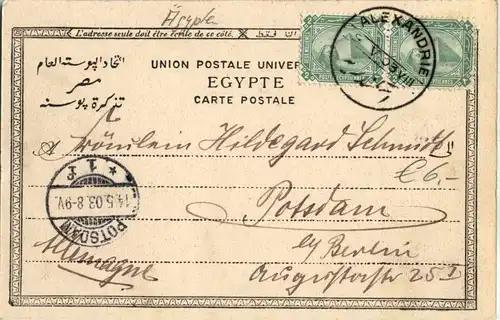 Ägypten
L'adresse seule doit être écrite de ce côté.
اتحاد البوستة العام
مصر
تذكرة بوسته
UNION POSTALE UNIVER
EGYPTE
CARTE POSTALE
ALEXANDRIE
V 03 VIII
Fräulein Hildegard Schmidt
€ 6,-
Potsdam
b/ Berlin
Augustastr 25 I
Allemagne
POTSDAM
14.5.03.8-9V.
1 f